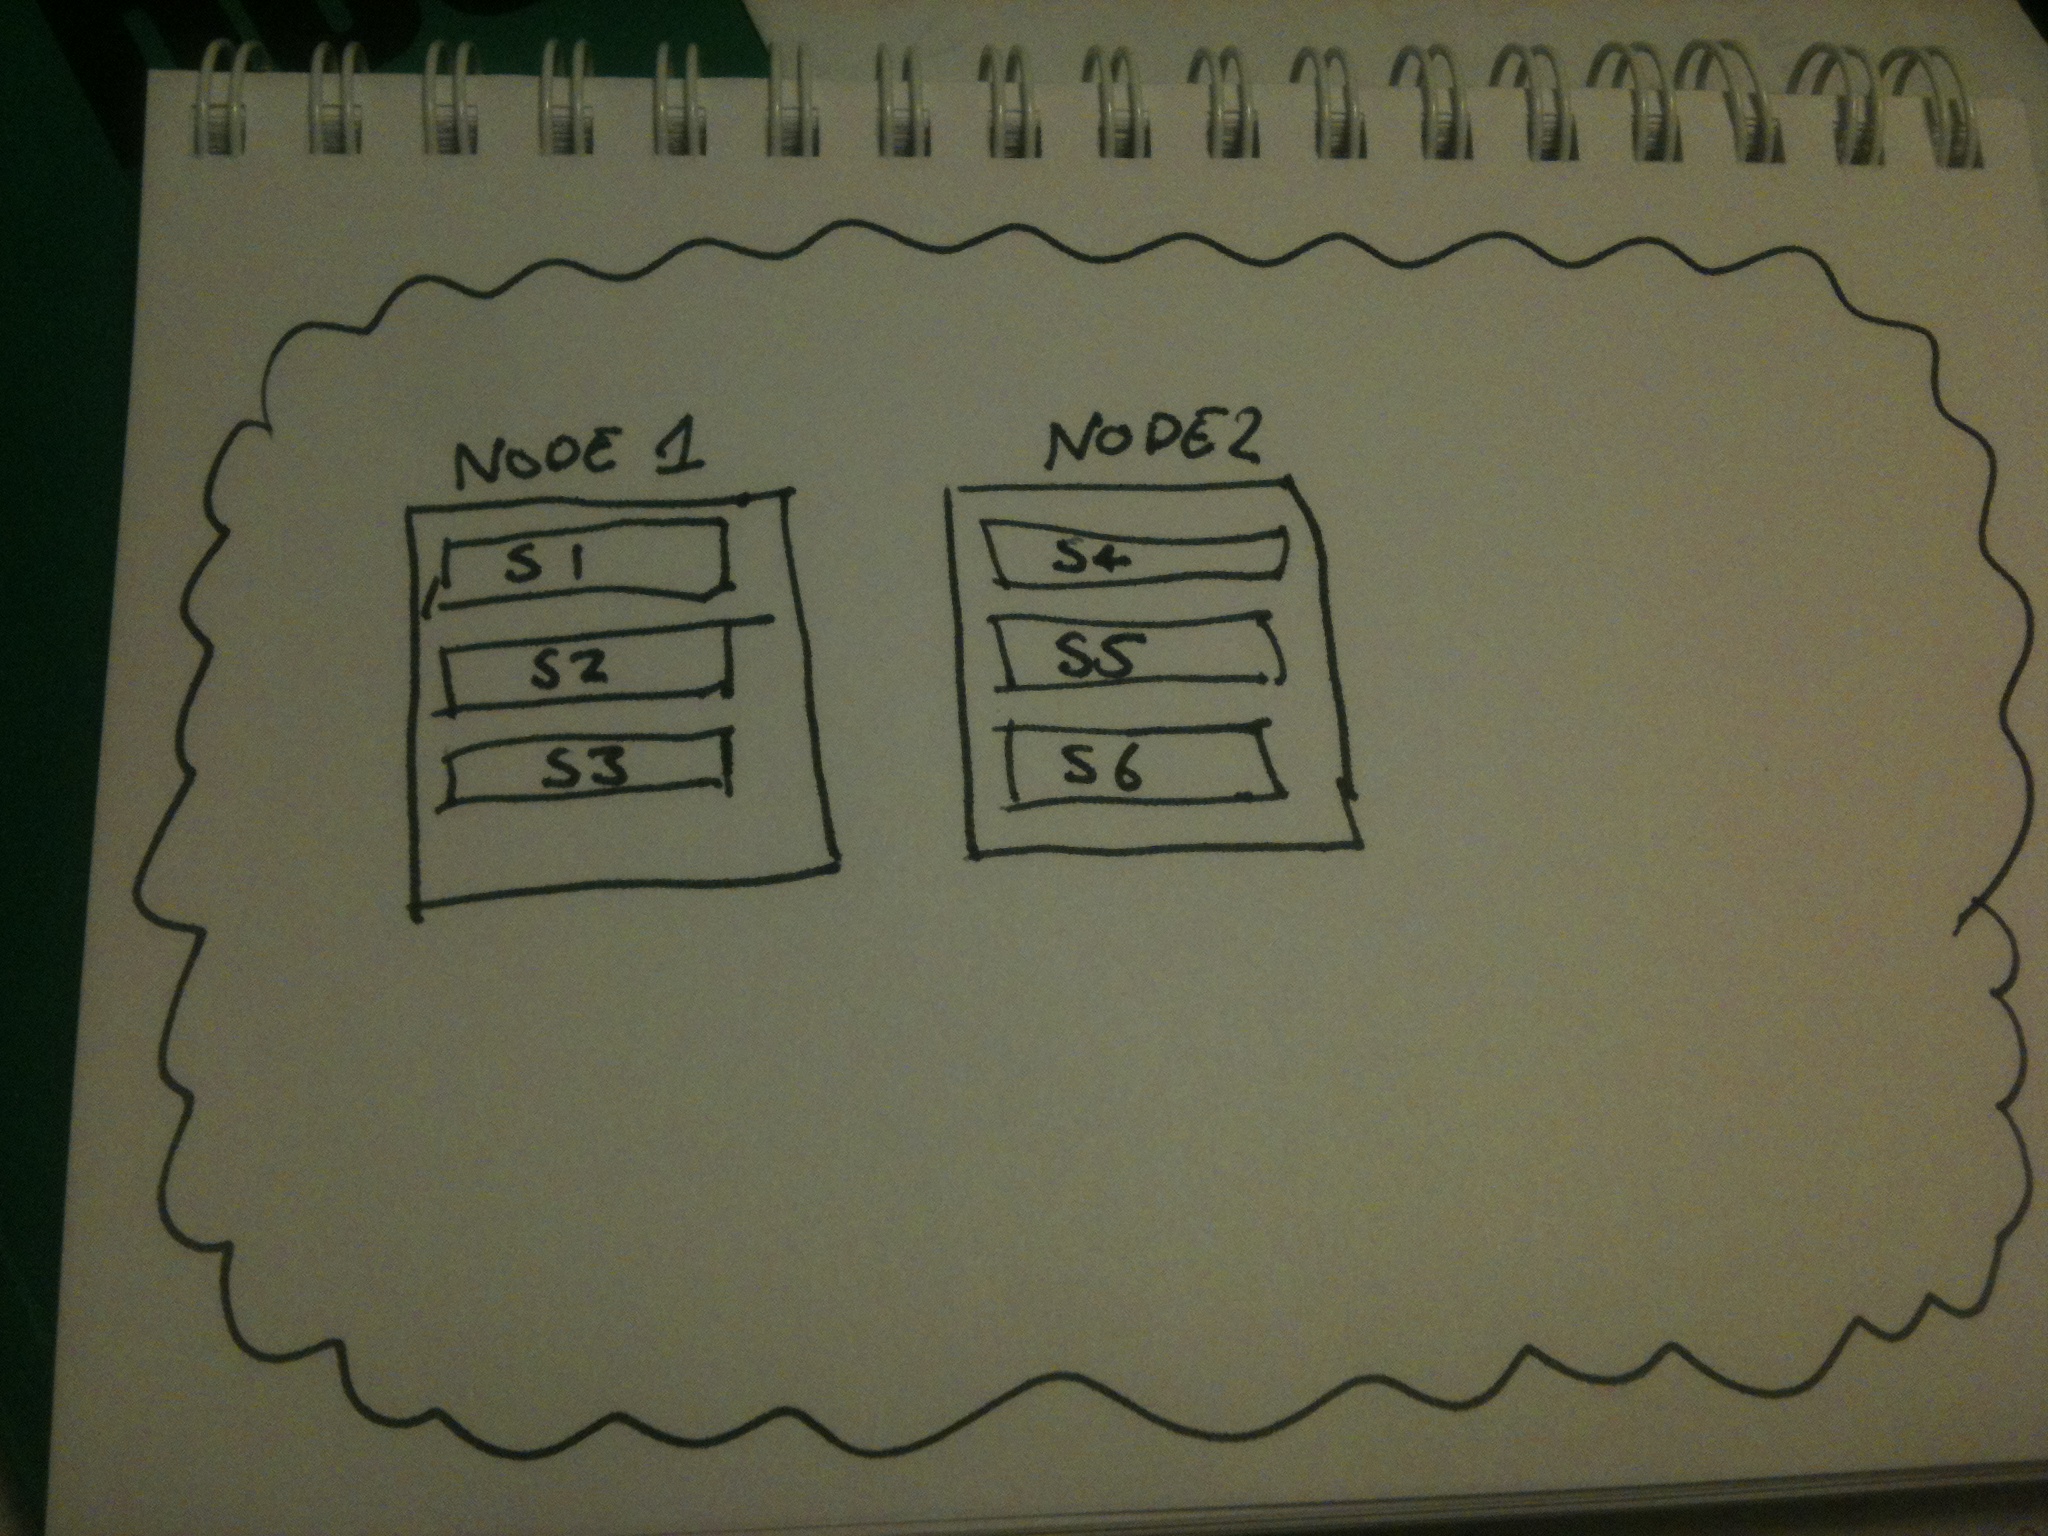 NODE 1
S1
S2
S3
NODE2
S4
S5
S6